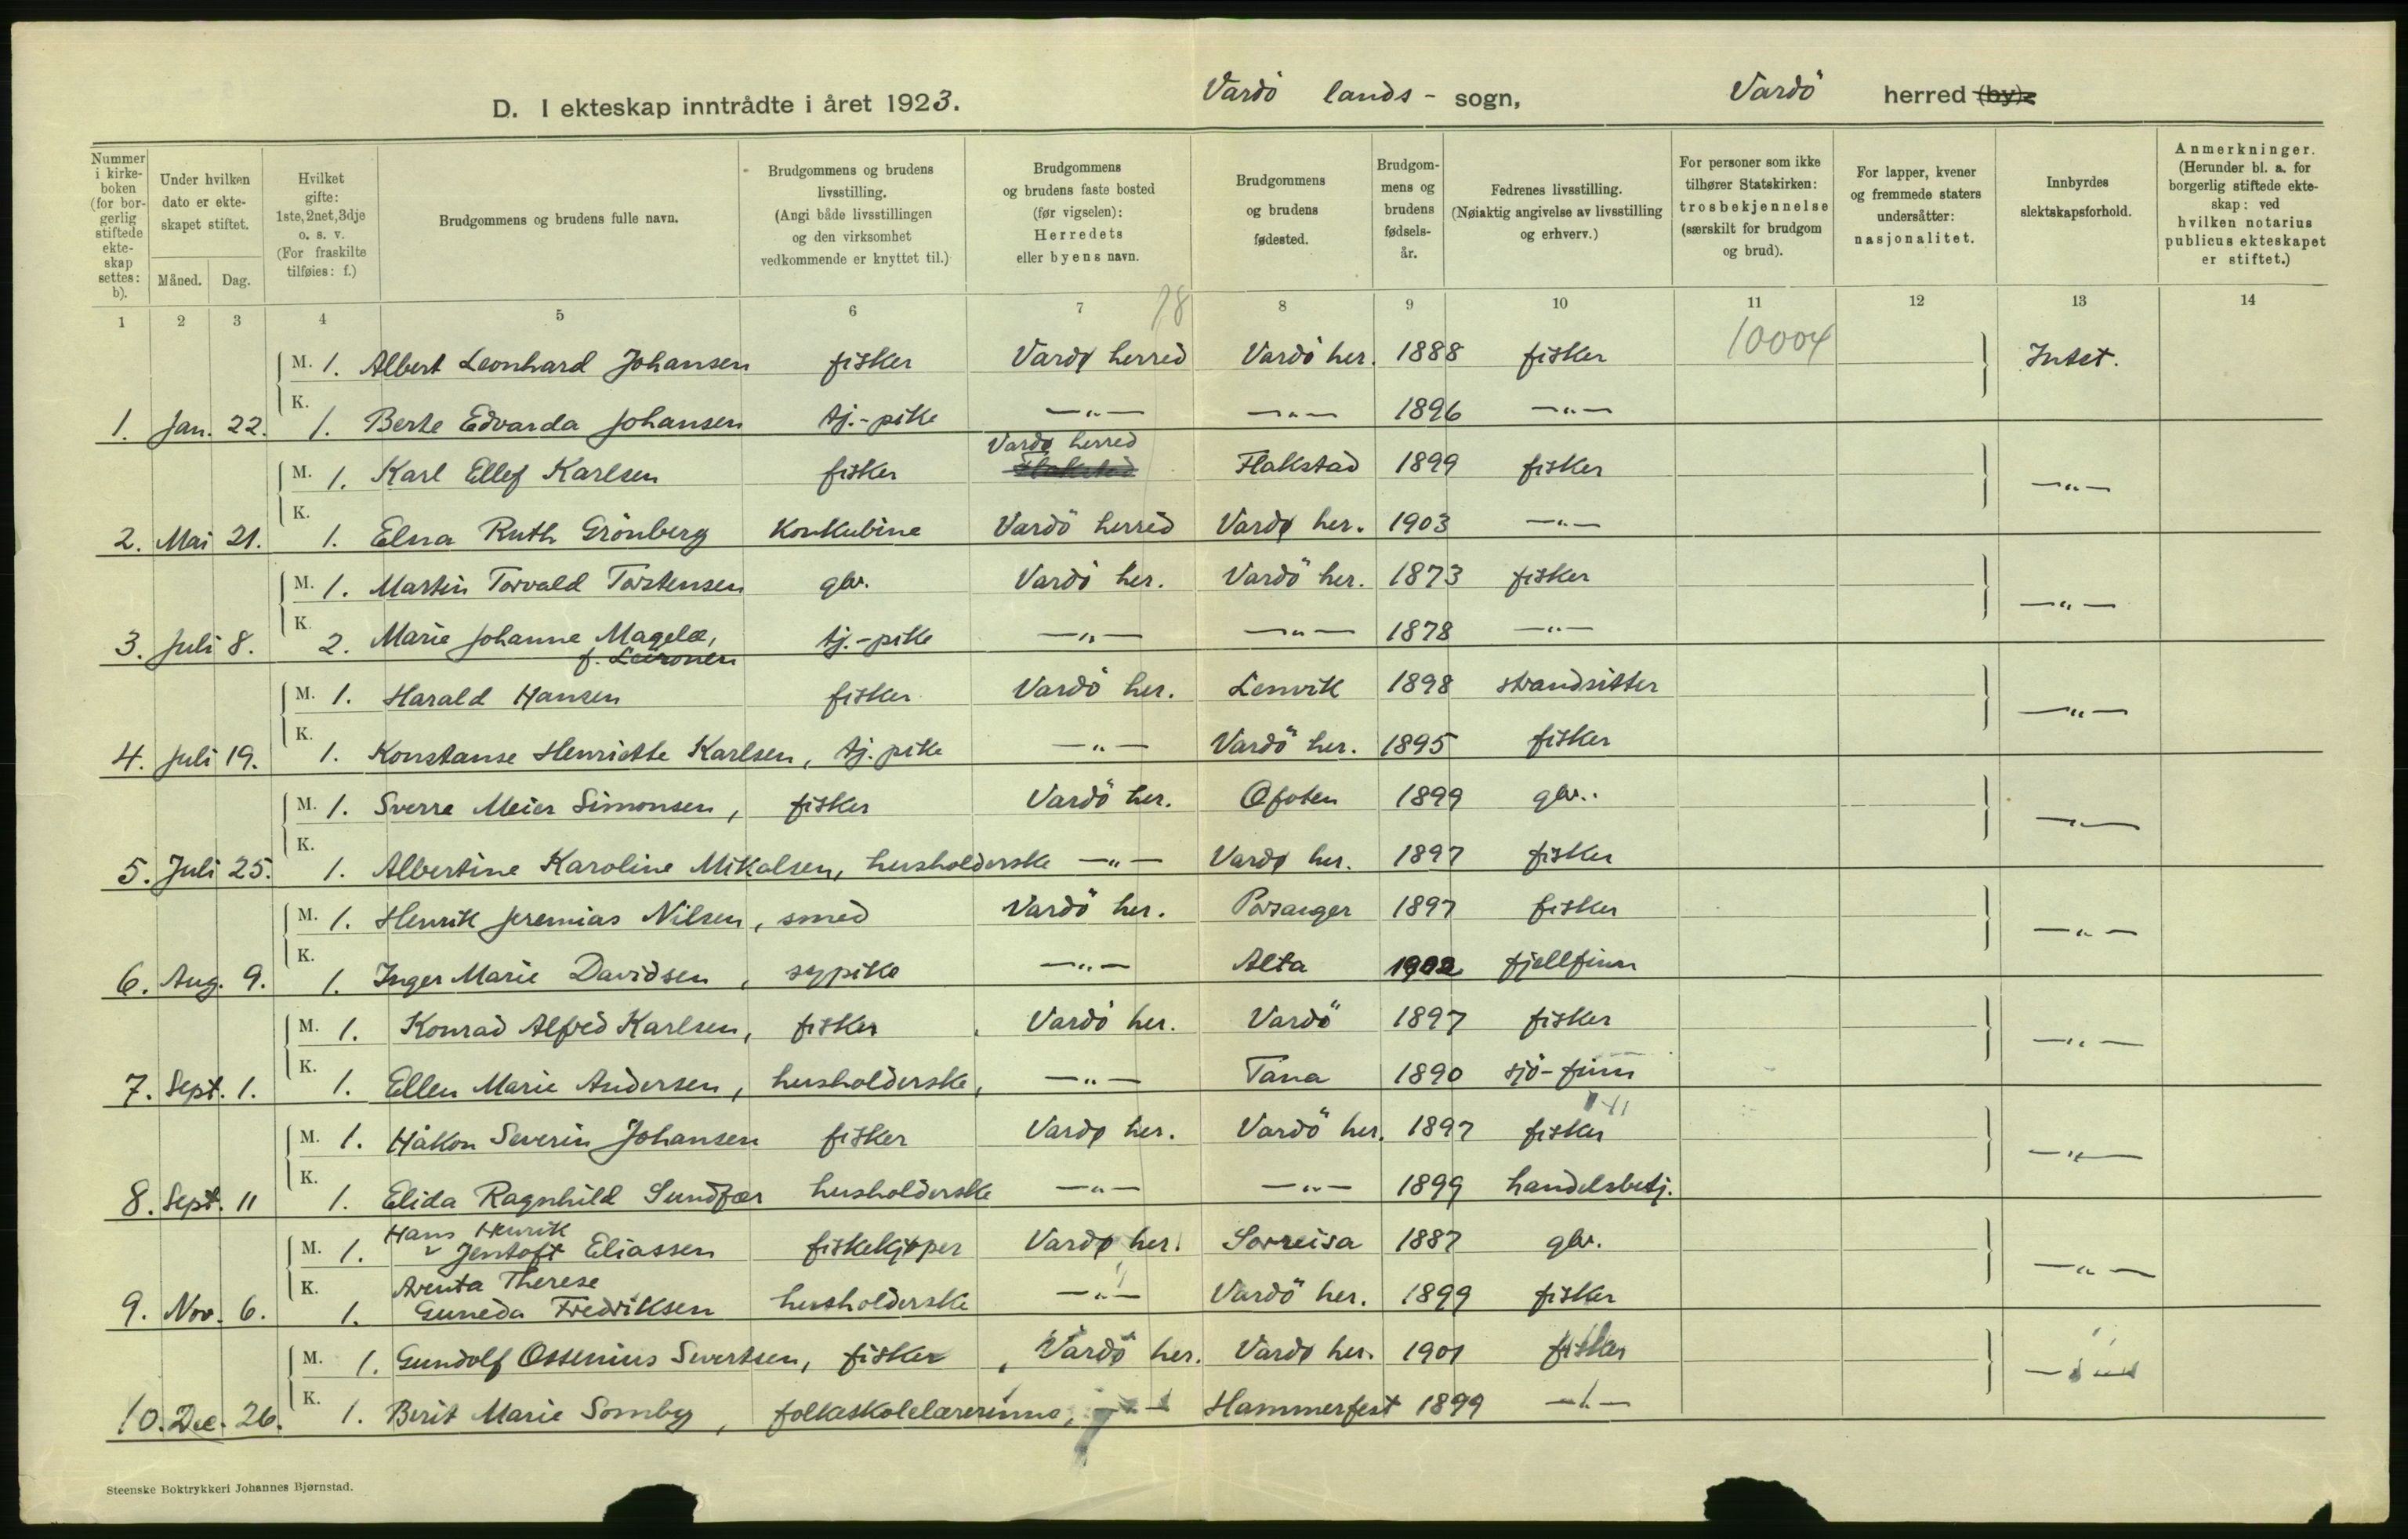 D. I ekteskap inntrådte i året 1923. Vardö lands- sogn, Vardö herred (by).
Nummer i kirkeboken (for borgerlig stiftede ekteskap settes: b).
Under hvilken dato er ekteskapet stiftet.
Måned. Dag.
Hvilket gifte: 1ste, 2net, 3dje o. s. v. (For fraskilte tilføies: f.)
Brudgommens og brudens fulle navn.
Brudgommens og brudens livsstilling. (Angi både livsstillingen og den virksomhet vedkommende er knyttet til.)
Brudgommens og brudens faste bosted (før vigselen): Herredets eller byens navn.
Brudgommens og brudens fødested.
Brudgommens og brudens fødselsår.
Fedrenes livsstilling. (Nøiaktig angivelse av livsstilling og erhverv.)
For personer som ikke tilhører Statskirken: trosbekjennelse (særskilt for brudgom og brud).
For lapper, kvener og fremmede staters undersåtter: nasjonalitet.
Innbyrdes slektskapsforhold.
Anmerkninger. (Herunder bl. a. for borgerlig stiftede ekteskap: ved hvilken notarius publicus ekteskapet er stiftet.)
1 2 3 4 5 6 7 8 9 10 11 12 13 14
78
10004
M. 1. Albert Leonhard Johansen fisker Vardø herred Vardö her. 1888 fisker Intet.
1. Jan. 22. K. 1. Berte Edvarda Johansen tj.-pike —"— —"— 1896 —"—
Vardø herred
M. 1. Karl Ellef Karlsen fisker Flakstad Flakstad 1899 fisker —"—
2. Mai 21. K. 1. Elna Ruth Grönberg Konkubine Vardö herred Vardø her. 1903 —"—
M. 1. Martin Torvald Torstensen gbr. Vardö her. Vardö her. 1873 fisker —"—
3. Juli 8. K. 2. Marie Johanne Magelæ, tj.-pike —"— —"— 1878 —"—
M. 1. Harald Hansen fisker Vardö her. Lenvik 1898 strandsitter —"—
4. Juli 19. K. 1. Konstanse Henriette Karlsen, tj. pike —"— Vardö her. 1895 fisker
M. 1. Sverre Meier Simonsen, fisker Vardö her. Ofoten 1899 gbr. —"—
5. Juli 25. K. 1. Albertine Karoline Mikalsen, husholderske —"— Vardø her. 1897 fisker
M. 1. Henrik Jeremias Nilsen, smed Vardö her. Porsanger 1897 fisker —"—
6. Aug. 9. K. 1. Inger Marie Davidsen, sypike —"— Alta 1902 fjellfinn
M. 1. Konrad Alfred Karlsen, fisker, Vardö her. Vardö 1897 fisker —"—
7. Sept. 1. K. 1. Ellen Marie Andersen, husholderske, —"— Tana 1890 sjö-finn
M. 1. Håkon Severin Johansen fisker Vardø her. Vardö her. 1897 fisker —"—
8. Sept. 11 K. 1. Elida Ragnhild Sundfær husholderske —"— —"— 1899 handelsbetj.
Hans Henrik
M. 1. Jentoft Eliassen fiskekjøper Vardø her. Sørreisa 1887 gbr. —"—
Arenta Therese
9. Nov. 6. K. 1. Guneda Fredriksen husholderske —"— Vardö her. 1899 fisker
M. 1. Gundolf Ossenius Sivertsen, fisker, Vardö her. Vardø her. 1901 fisker —"—
10. Dec. 26. K. 1. Berit Marie Somby, folkeskolelærerinne, —"— Hammerfest 1899 —"—
Steenske Boktrykkeri Johannes Bjørnstad.